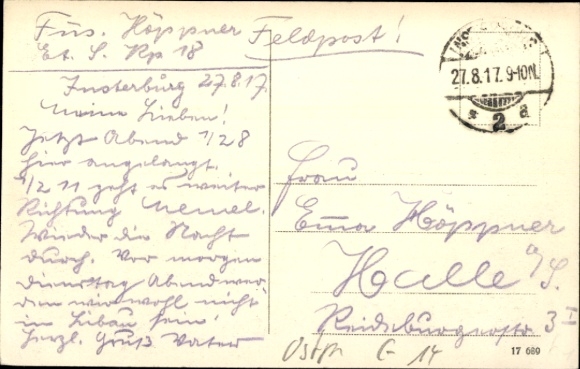 Füs. Höppner
Et. S. Kp 18
Feldpost!
Insterburg 27.8.17.
Meine Lieben!
Jetzt Abend 1/2 8
hier angelangt.
1/2 11 geht es weiter
Richtung Memel.
Wieder die Nacht
durch. Vor morgen
Dienstag Abend wer
den wir wohl nicht
in Libau sein!
Herzl. Gruß Vater
27.8.17. 9-10N.
* 2 a
Frau
Emma Höppner
Halle a/S.
Reideburgerstr. 3 I
Ostpr. C-14
17 689